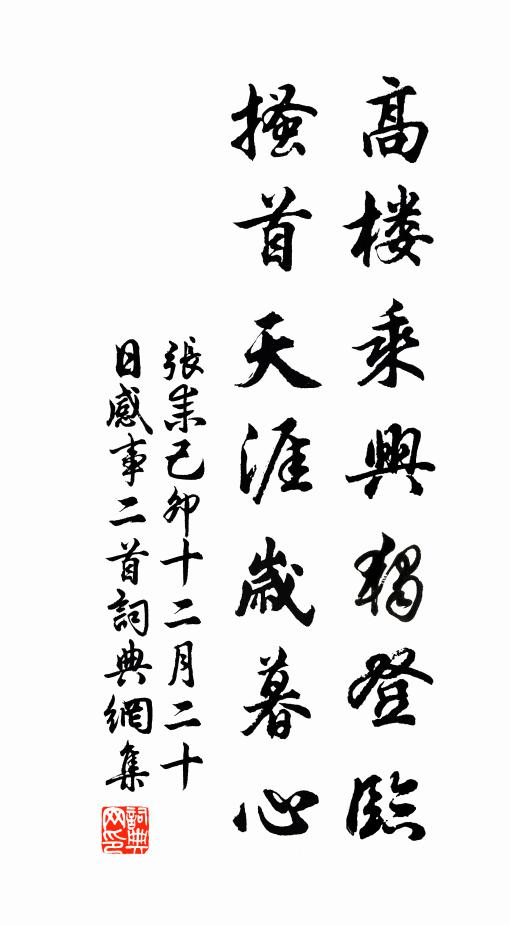 高楼乘興獨登臨
搔首天涯歲暮心
張耒己卯十二月二十
日感事二首詞典網集
詞典網印